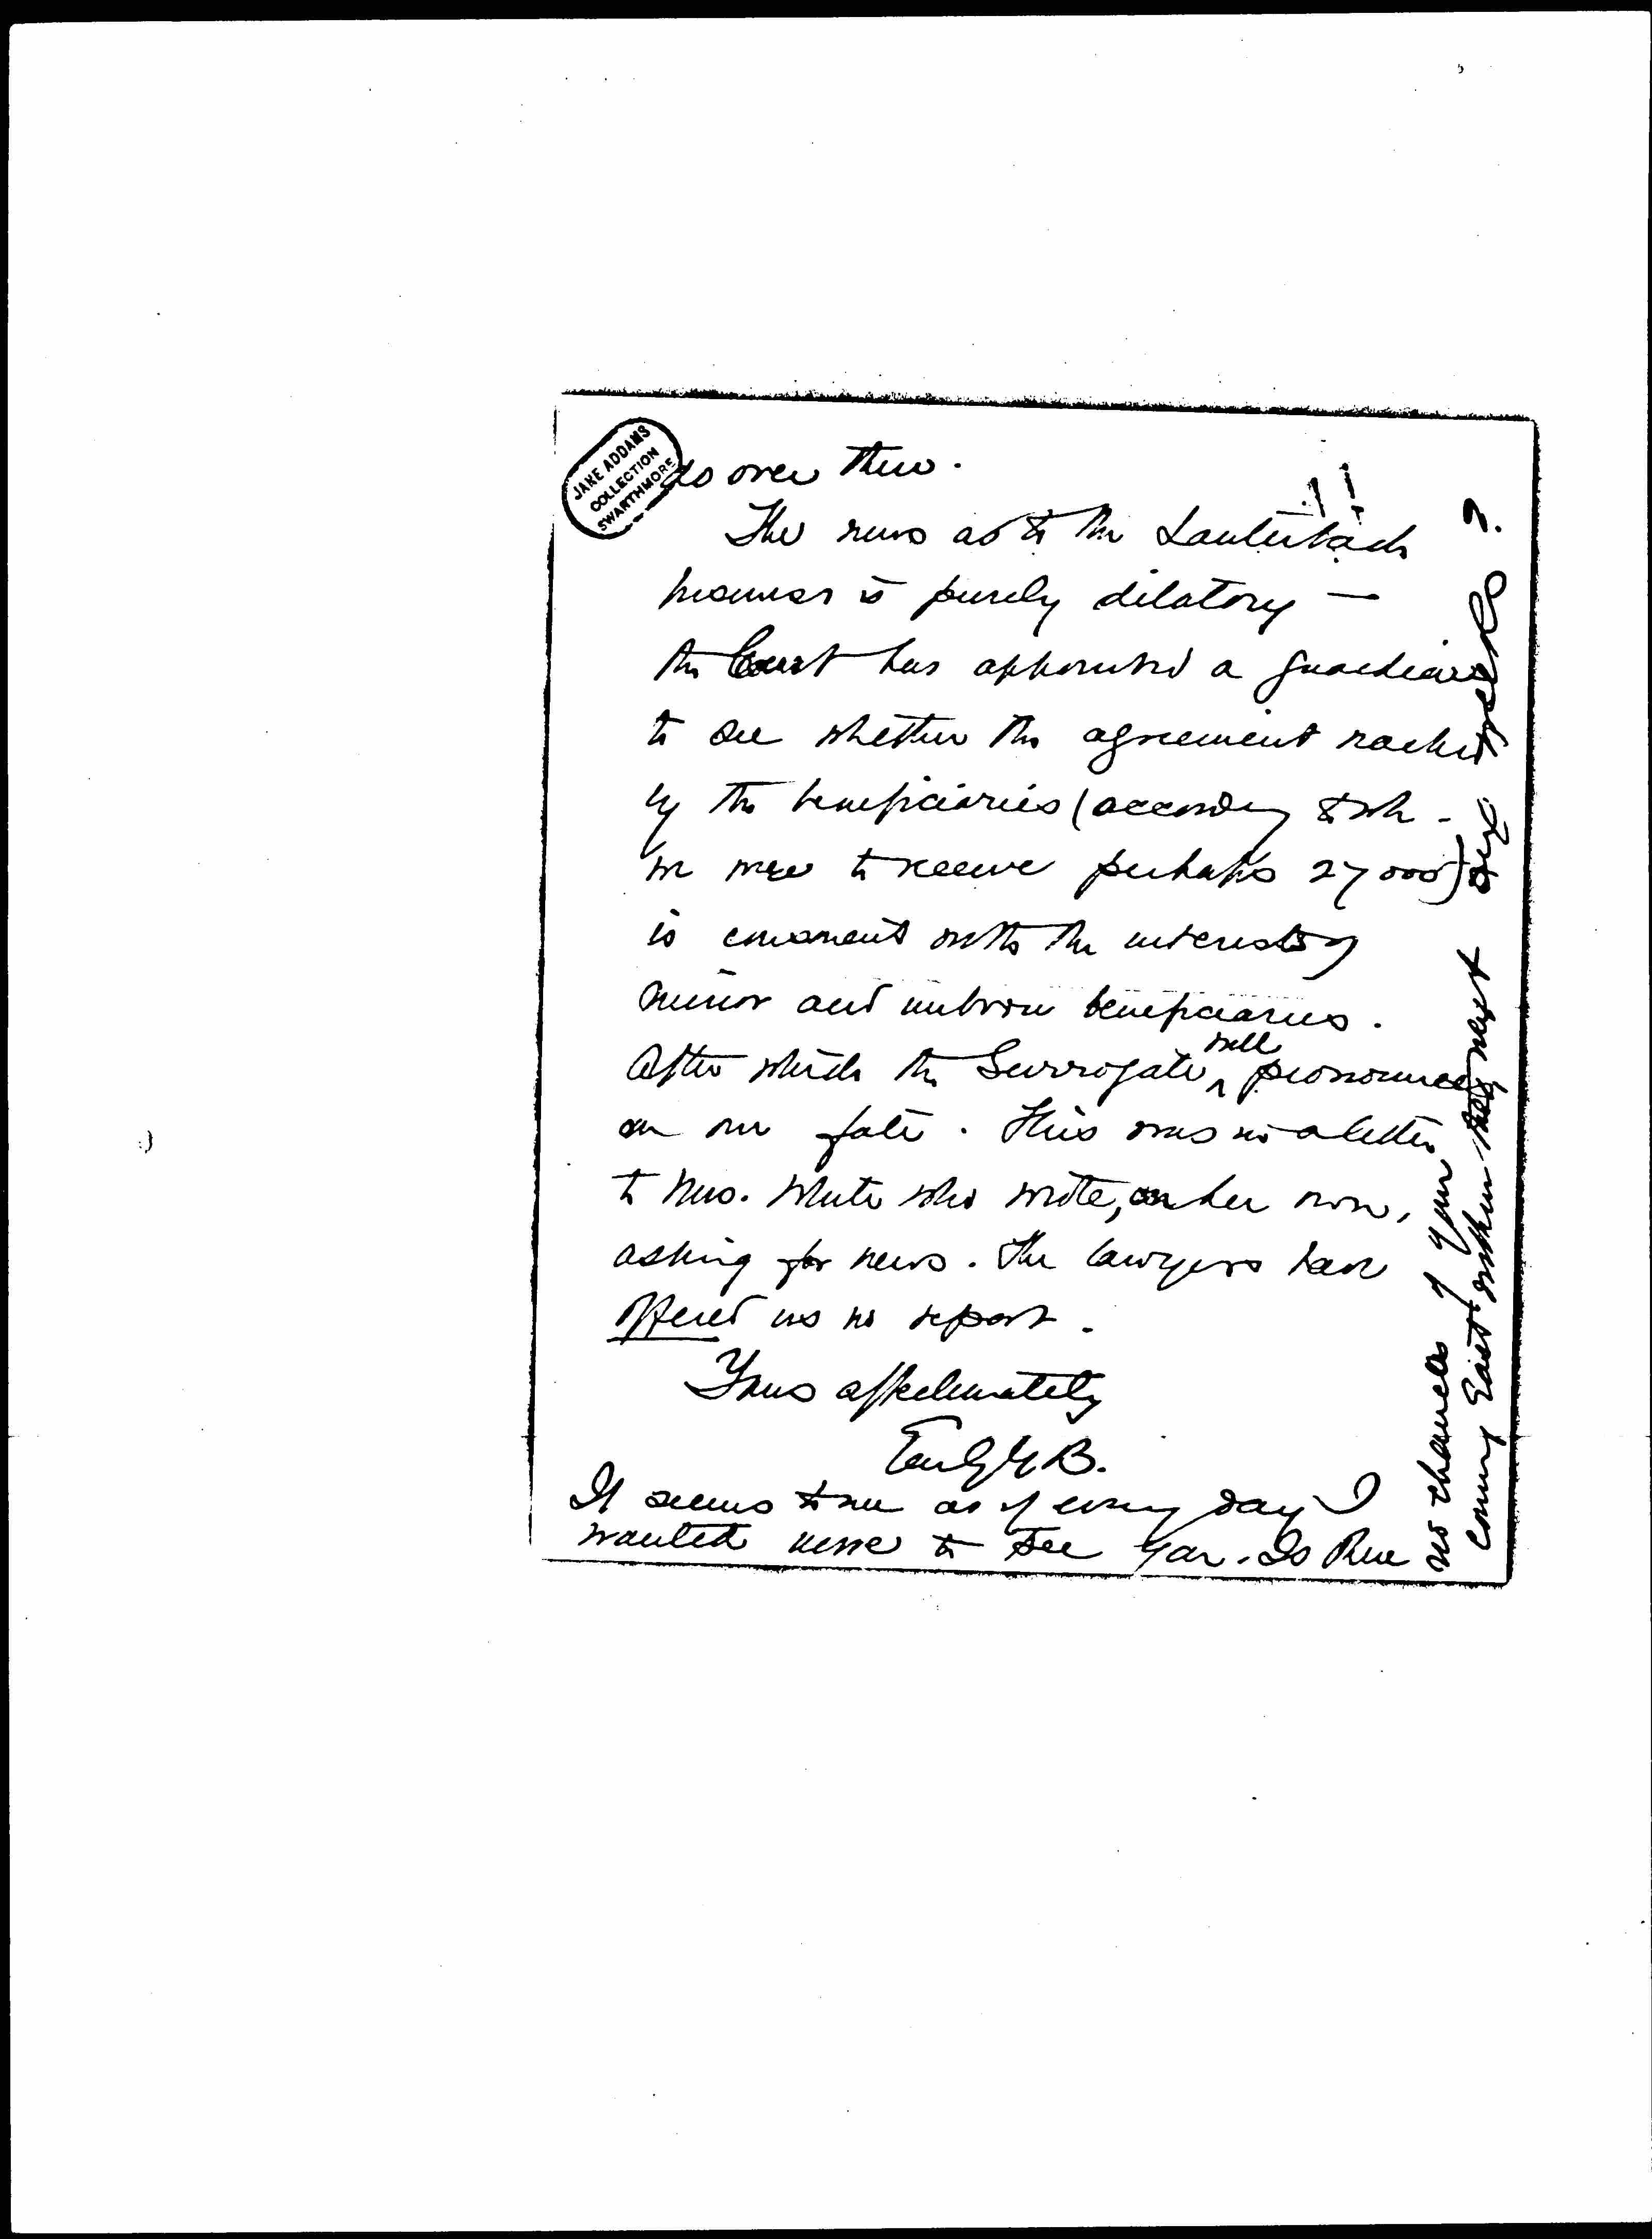 JANE ADDAMS
COLLECTION
SWARTHMORE
do over there.
The news as to the Lauterbach !!
business is purely dilatory —
the Court has appointed a guardian
to see whether the agreement reached
by the beneficiaries (according to wh.
we were to receive perhaps 27000)
is consonant with the interests of
minor and unborn beneficiaries.
After which the Surrogate will pronounce
on our fate. This was in a letter
to Mrs. White who wrote, on her own,
asking for news. The lawyers have
offered us no report.
Yours affectionately
Emily G B.
It seems to me as if every day I
wanted more to see you. Is there
no chance of your
coming East within the next
six weeks?